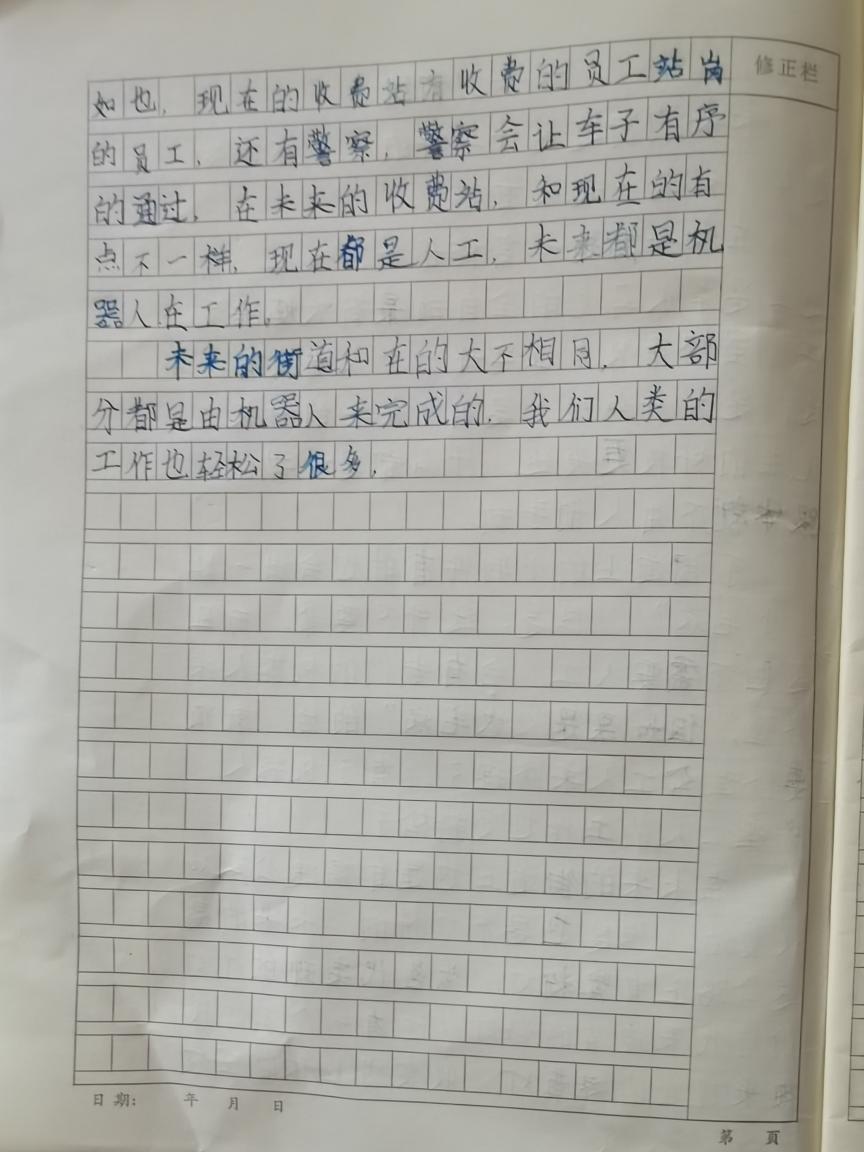 如也，现在的收费站有收费的员工站岗
修正栏
的员工，还有警察，警察会让车子有序
的通过，在未来的收费站，和现在的有
点不一样，现在都是人工，未来都是机
器人在工作。
未来的街道和在的大不相同，大部
分都是由机器人来完成的，我们人类的
工作也轻松了很多，
日期： 年 月 日
第 页